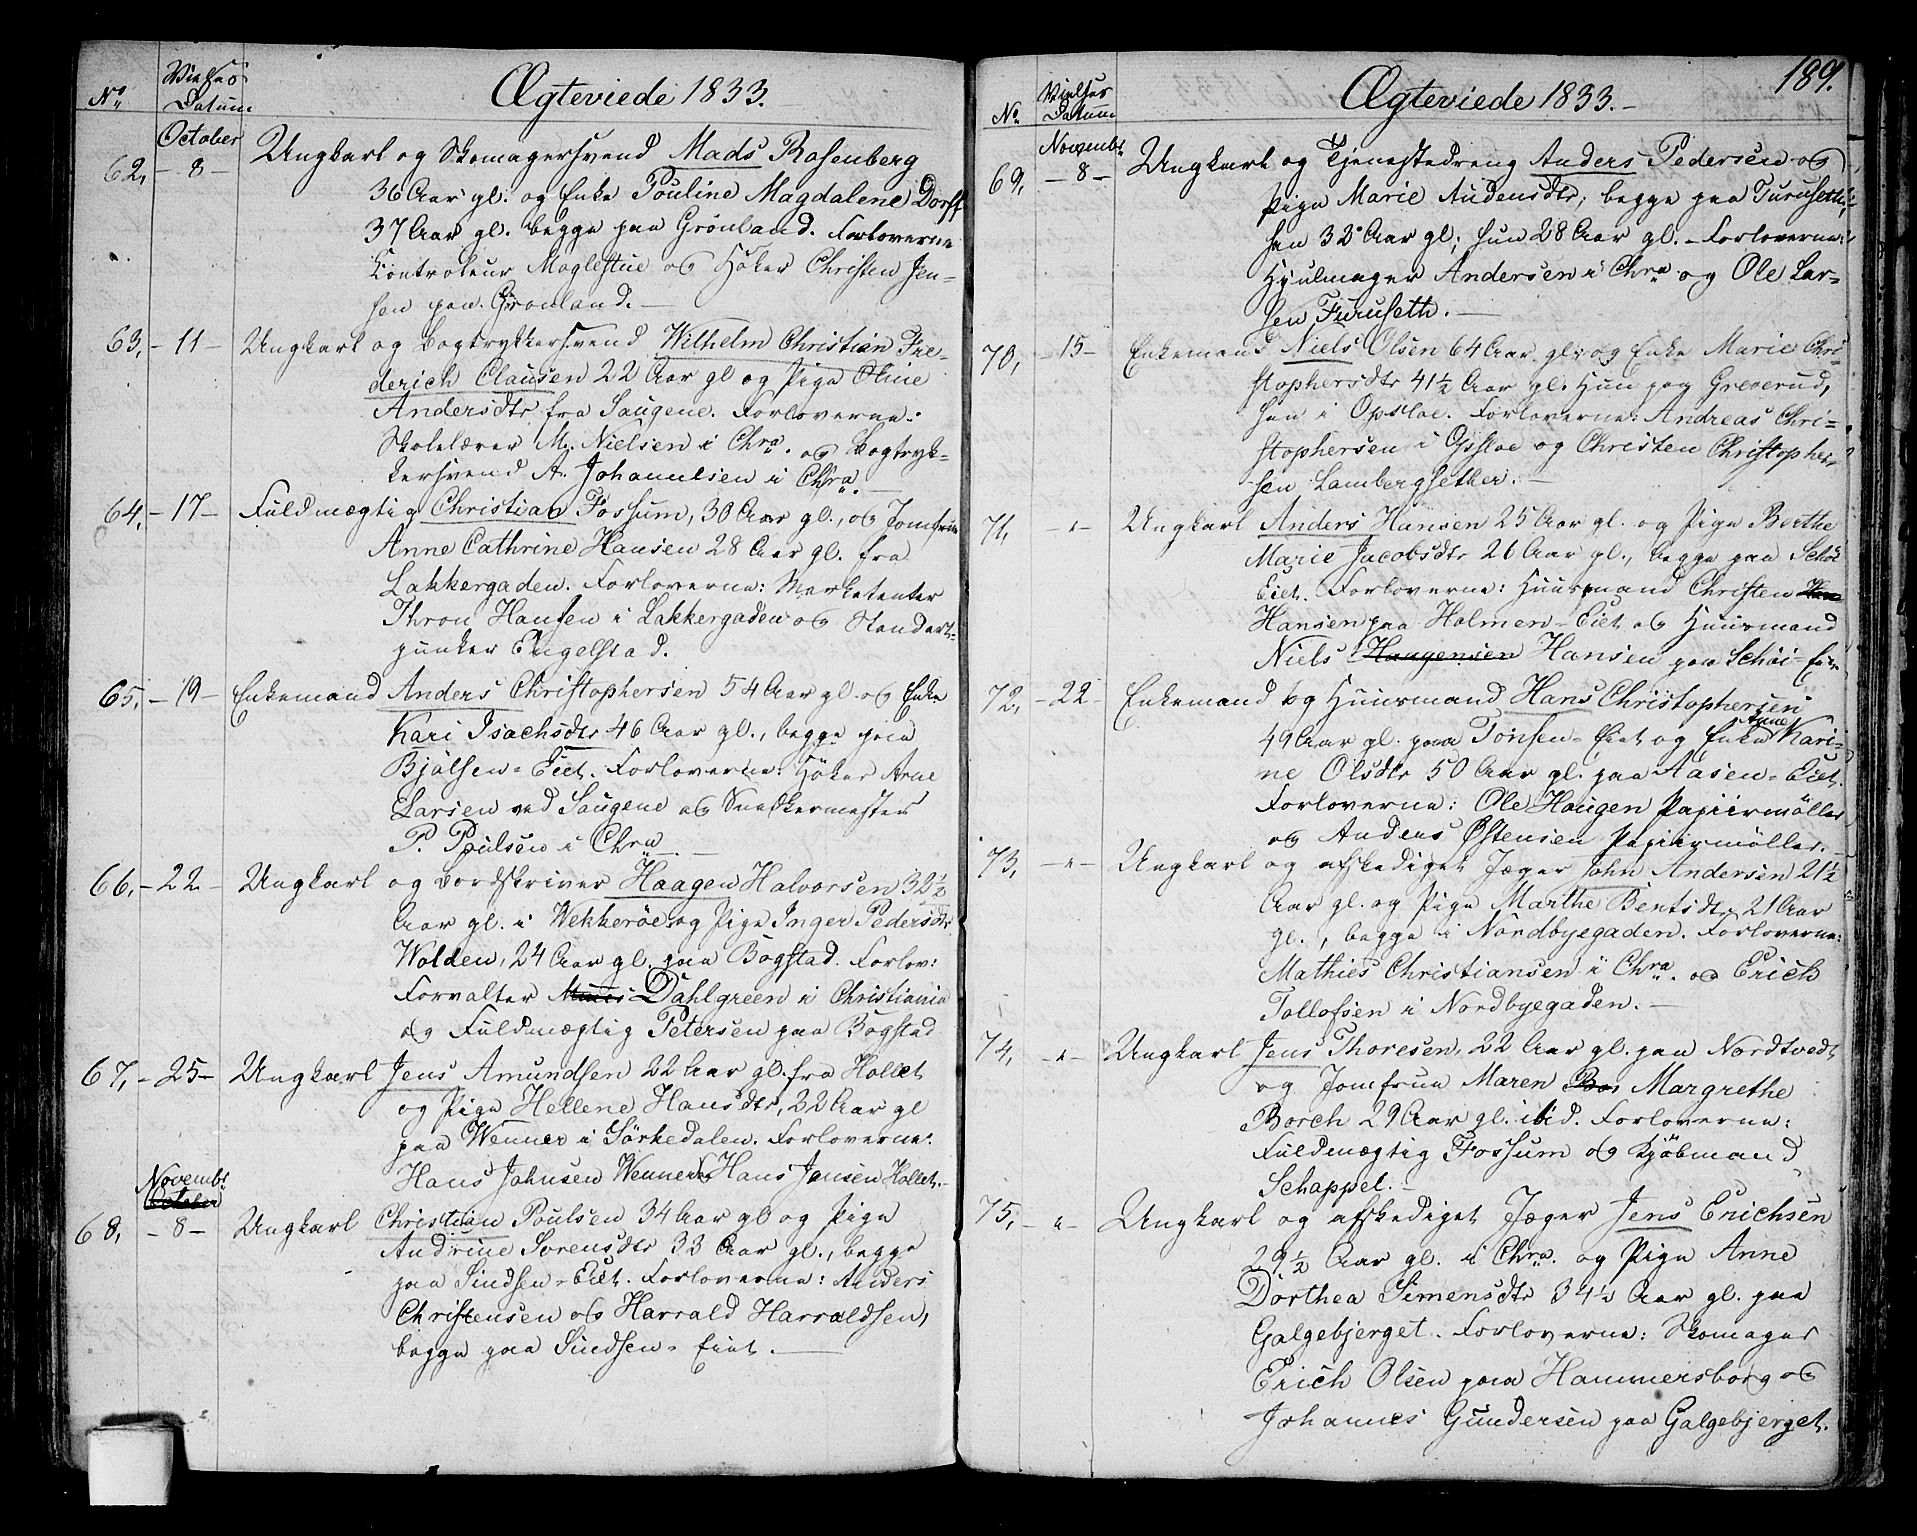 No. Vielses Datum Ægteviede 1833.
October
62, - 8 - Ungkarl og Skomagersvend Mads Rosenberg
36 Aar gl. og Enke Pouline Magdalene Dorff
37 Aar gl. begge paa Grönland. Forloverne
Controleur Moglestue og Höker Christen Jen-
sen paa Grönland. -
63, - 11 - Ungkarl og Bogtrykkersvend Wilhelm Christian Fre-
derich Clausen 22 Aar gl og Pige Oline
Andersdtr fra Saugene. Forloverne:
Skolelærer M. Nielsen i Chra. og Bogtryk-
kersvend A. Johannesen i Chra. -
64, - 17 - Fuldmægtig Christian Fossum, 30 Aar gl., og Jomfrue
Anne Cathrine Hansen 28 Aar gl. fra
Lakkergaden. Forloverne: Marketenter
Thron Hansen i Lakkergaden og Standart-
junker Engelstad.
65, - 19 - Enkemand Anders Christophersen 54 Aar gl og Enke
Kari Isachsdtr 46 Aar gl., begge paa
Bjölsen-Eiet. Forloverne: Höker Arne
Larsen ved Saugene og Snedkermester
P. Poulsen i Chra. -
66, - 22 - Ungkarl og Bordskriver Haagen Halvorsen 32½
Aar gl. i Wekkeröe og Pige Inger Pedersdtr
Wolden, 24 Aar gl. paa Bogstad. Forlov:
Forvalter Dahlgreen i Christiania
og Fuldmægtig Petersen paa Bogstad
67, - 25 - Ungkarl Jens Amundsen 22 Aar gl. fra Hollet
og Pige Hellene Hansdtr, 22 Aar gl
paa Wenner i Sörkedalen. Forloverne:
Hans Jahnsen Wenner og Hans Jensen Hollet. -
Novembr
October
68, - 8 - Ungkarl Christian Poulsen 34 Aar gl og Pige
Andrine Sorensdtr 33 Aar gl., begge
paa Sindsen-Eiet. Forloverne: Anders
Christensen og Harrald Harraldsen,
begge paa Sindsen-Eiet. -
189.
No. Vielses Datum Ægteviede 1833. -
Novembr
69, - 8 - Ungkarl og Tjenestedreng Anders Pedersen og
Pige Marie Audensdtr, begge paa Furuseth,
han 32 Aar gl; hun 28 Aar gl. - Forloverne:
Hjulmager Andersen i Chra og Ole Lar-
sen Furuseth. -
70, - 15 - Enkemand Niels Olsen 64 Aar gl; og Enke Marie Chri-
stophersdtr 41½ Aar gl. Hun paa Greverud,
han i Opsloe. Forloverne: Andreas Chri-
stophersen i Opsloe og Christen Christopher-
sen Lambergsether. -
71, - " - Ungkarl Anders Hansen 25 Aar gl. og Pige Berthe
Marie Jacobsdtr 26 Aar gl., begge paa Schöi
Eiet. Forloverne: Huusmand Christen Han
Hansen paa Holmen-Eiet og Huusmand
Niels Haagensen Hansen paa Schöi-Eie
72, - 22 - Enkemand og Huusmand Hans Christophersen
49 Aar gl. paa Tonsen-Eiet og Enke Anne Kari-
ne Olsdtr 50 Aar gl. paa Aasen-Eiet.
Forloverne: Ole Haugen Papiirmöller
og Anders Östensen Papiirmöller. -
73, - " - Ungkarl og afskediget Jæger John Andersen 21½
Aar gl. og Pige Marthe Bentsdtr 21 Aar
gl., begge i Nordbyegaden. Forloverne:
Mathies Christiansen i Chra. og Erich
Tollofsen i Nordbyegaden. -
74, - " - Ungkarl Jens Thoresen, 22 Aar gl. paa Nordtvedt
og Jomfrue Maren Bor Margrethe
Borch 29 Aar gl. ibid. Forloverne:
Fuldmægtig Fossum og Kjöbmand
Schappel. -
75, - " - Ungkarl og afskediget Jæger Jens Erichsen
29½ Aar gl. i Chra. og Pige Anne
Dorthea Simensdtr 34½ Aar gl. paa
Galgebjerget. Forloverne: Skomager
Erich Olsen paa Hammersborg og
Johannes Gundersen paa Galgebjerget.